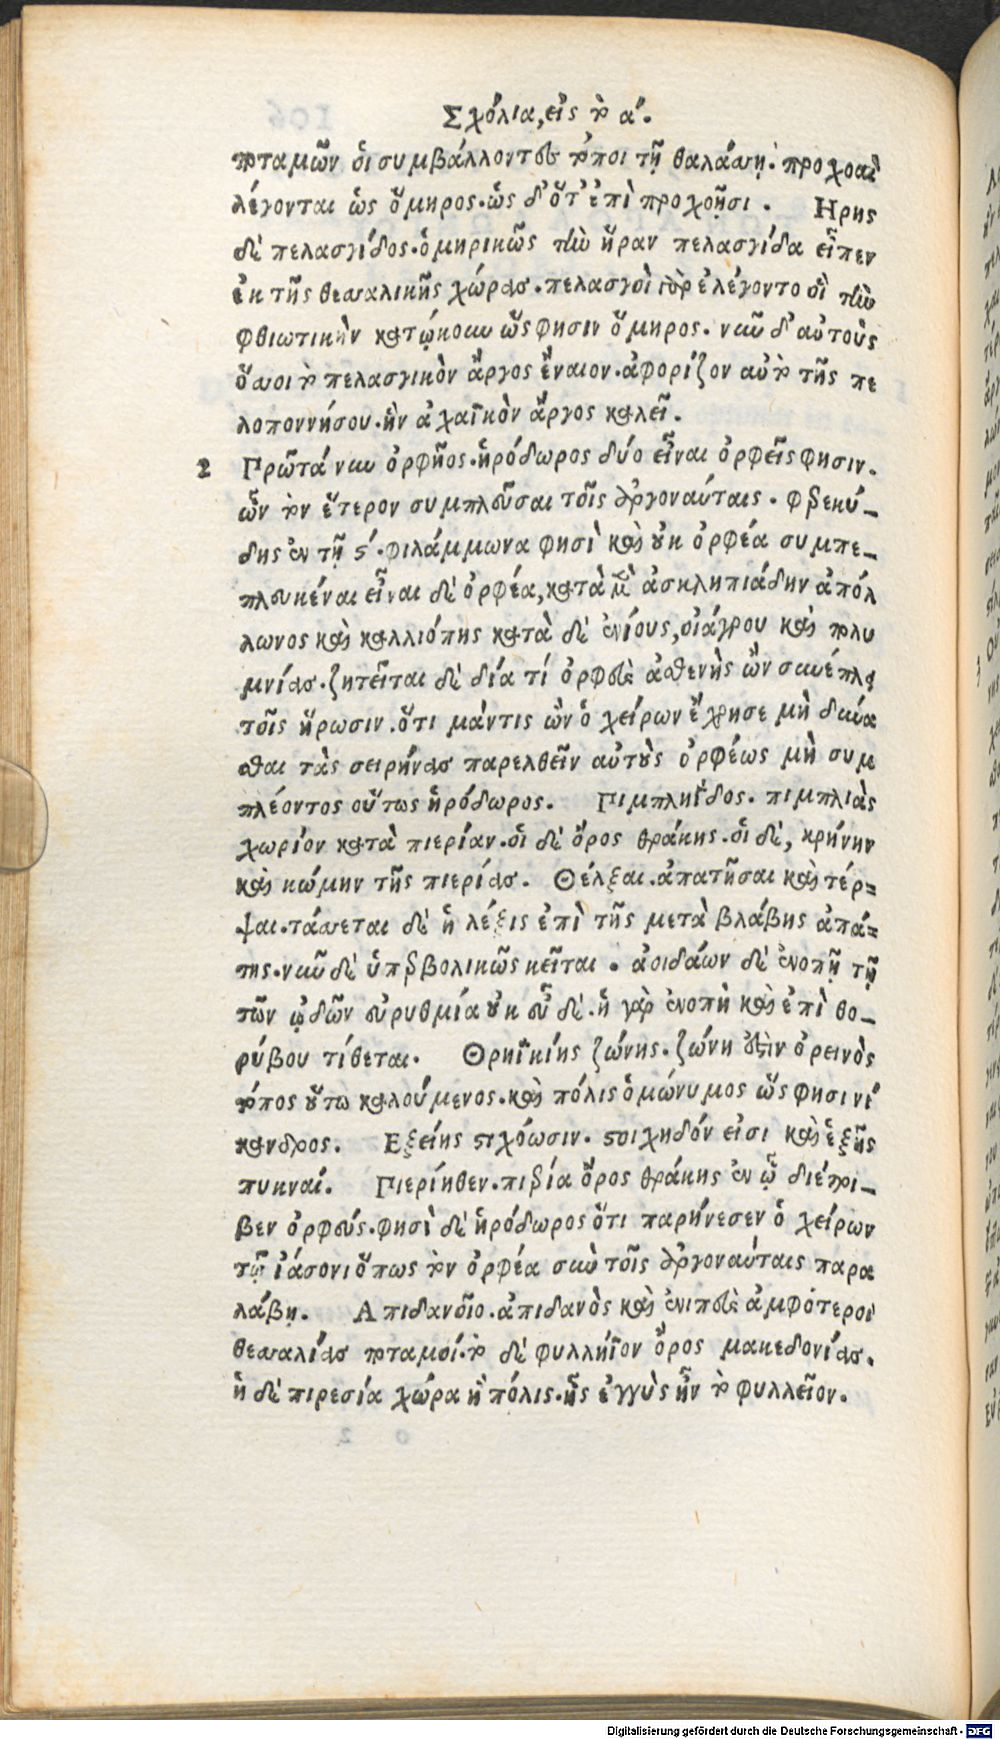 Σχόλια, εἰς τὸ α΄.
ποταμῶν ὁι συμβάλλοντες τόποι τῇ θαλάσσῃ. προχοαὶ
λέγονται ὡς ὅμηρος. ὡς δ' ὅτ' ἐπὶ προχοῇσι. Ηρης
δὲ πελασγίδος. ὁμηρικῶς τὴν ἥραν πελασγίδα εἶπεν
ἐκ τῆς θεσσαλικῆς χώρας. πελασγοὶ γὰρ ἐλέγοντο οἳ τὴν
φθιωτικὴν κατῴκουν ὥς φησιν ὅμηρος. νῦν δ' αὐτοὺς
ὅσσοι τὸ πελασγικὸν ἄργος ἔναιον. ἀφορίζον αὐτὸ τῆς πε
λοποννήσου. ἣν ἀχαϊκὸν ἄργος καλεῖ.
2 Πρῶτά νυν ὀρφῆος. ἡρόδωρος δύο εἶναι ὀρφεῖς φησιν.
ὧν τὸν ἕτερον συμπλεῦσαι τοῖς ἀργοναύταις. φερεκύ-
δης ἐν τῇ ϛ΄. φιλάμμωνα φησὶ καὶ οὐκ ὀρφέα συμπε-
πλευκέναι εἶναι δὲ ὀρφέα, κατὰ μὲν ἀσκληπιάδην ἀπόλ
λωνος καὶ καλλιόπης κατὰ δὲ ἐνίους, οἰάγρου καὶ πολυ
μνίας. ζητεῖται δὲ δία τί ὀρφεὺς ἀσθενὴς ὢν συνέπλει
τοῖς ἥρωσιν. ὅτι μάντις ὢν ὁ χείρων ἔχρησε μὴ δύνα
σθαι τὰς σειρήνας παρελθεῖν αὐτοὺς ὀρφέως μὴ συμ
πλέοντος οὕτως ἡρόδωρος. Πιμπληΐδος. πιμπλιὰς
χωρίον κατὰ πιερίαν. ὁι δὲ ὄρος θράκης. ὁι δὲ, κρήνην
καὶ κώμην τῆς πιερίας. Θέλξαι. ἀπατῆσαι καὶ τέρ=
ψαι. τάσσεται δὲ ἡ λέξις ἐπὶ τῆς μετὰ βλάβης ἀπά=
της. νῦν δὲ ὑπερβολικῶς κεῖται. ἀοιδάων δὲ ἐνοπῇ τῇ
τῶν ᾠδῶν εὐρυθμία οὐκ εὖ δὲ. ἡ γὰρ ἐνοπὴ καὶ ἐπὶ θο-
ρύβου τίθεται. Θρηϊκίης ζώνης. ζώνη ἐστὶν ὀρεινὸς
τόπος οὕτω καλούμενος. καὶ πόλις ὁμώνυμος ὥς φησι νί
κανδρος. Εξείης στιχόωσιν. στοιχηδόν εἰσι καὶ ἑξῆς
πυκναί. Πιερίηθεν. πιερία ὄρος θράκης ἐν ᾧ διέτρι-
βεν ὀρφεύς. φησὶ δὲ ἡρόδωρος ὅτι παρήνεσεν ὁ χείρων
τῷ ἰάσονι ὅπως τὸν ὀρφέα σὺν τοῖς ἀργοναύταις παρα
λάβῃ. Απιδανοῖο. ἀπιδανὸς καὶ ἐνιπεὺς ἀμφότεροι
θεσσαλίας ποταμοί. τὸ δὲ φυλλήϊον ὄρος μακεδονίας.
ἡ δὲ πιρεσία χώρα ἢ πόλις. ἧς ἐγγὺς ἦν τὸ φυλλεῖον.
Digitalisierung gefördert durch die Deutsche Forschungsgemeinschaft - DFG